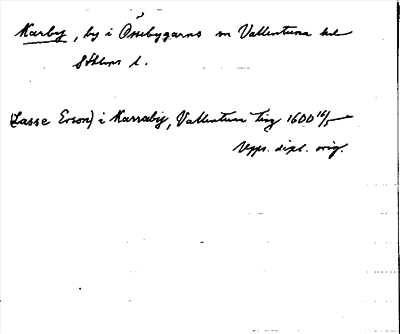 Karby, by i Össebygarns sn Vallentuna hd
Sthlms l.
(Lasse Erson) i Karraby, Vallentuna ting 1600 16/5
Upps. dipl. orig.